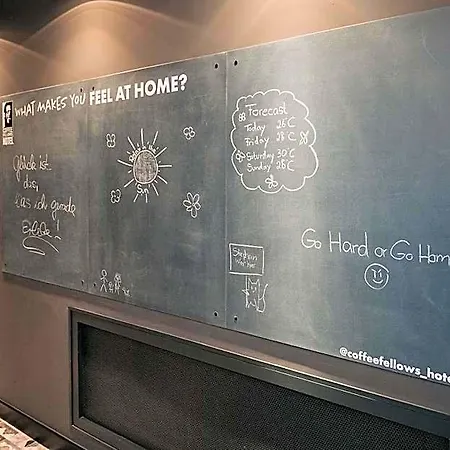 WHAT MAKES YOU FEEL AT HOME?
HOTEL
Glück ist
das,
was ich gerade
Forecast
Today 26°C
Friday 28°C
Saturday 30°C
Sunday 25°C
Sun
Go Hard or Go Hom
@coffeefellows_hote